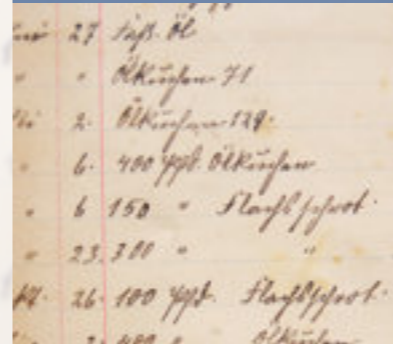 27 Faß. Öl
" " Ölkuchen 71
2. Ölkuchen 129.
" 6. 400 Pfd. Ölkuchen
" 6 150 " Flachsschrot.
" 23. 300 " "
26. 100 Pfd. Flachsschrot.
2. 400 " Ölkuchen